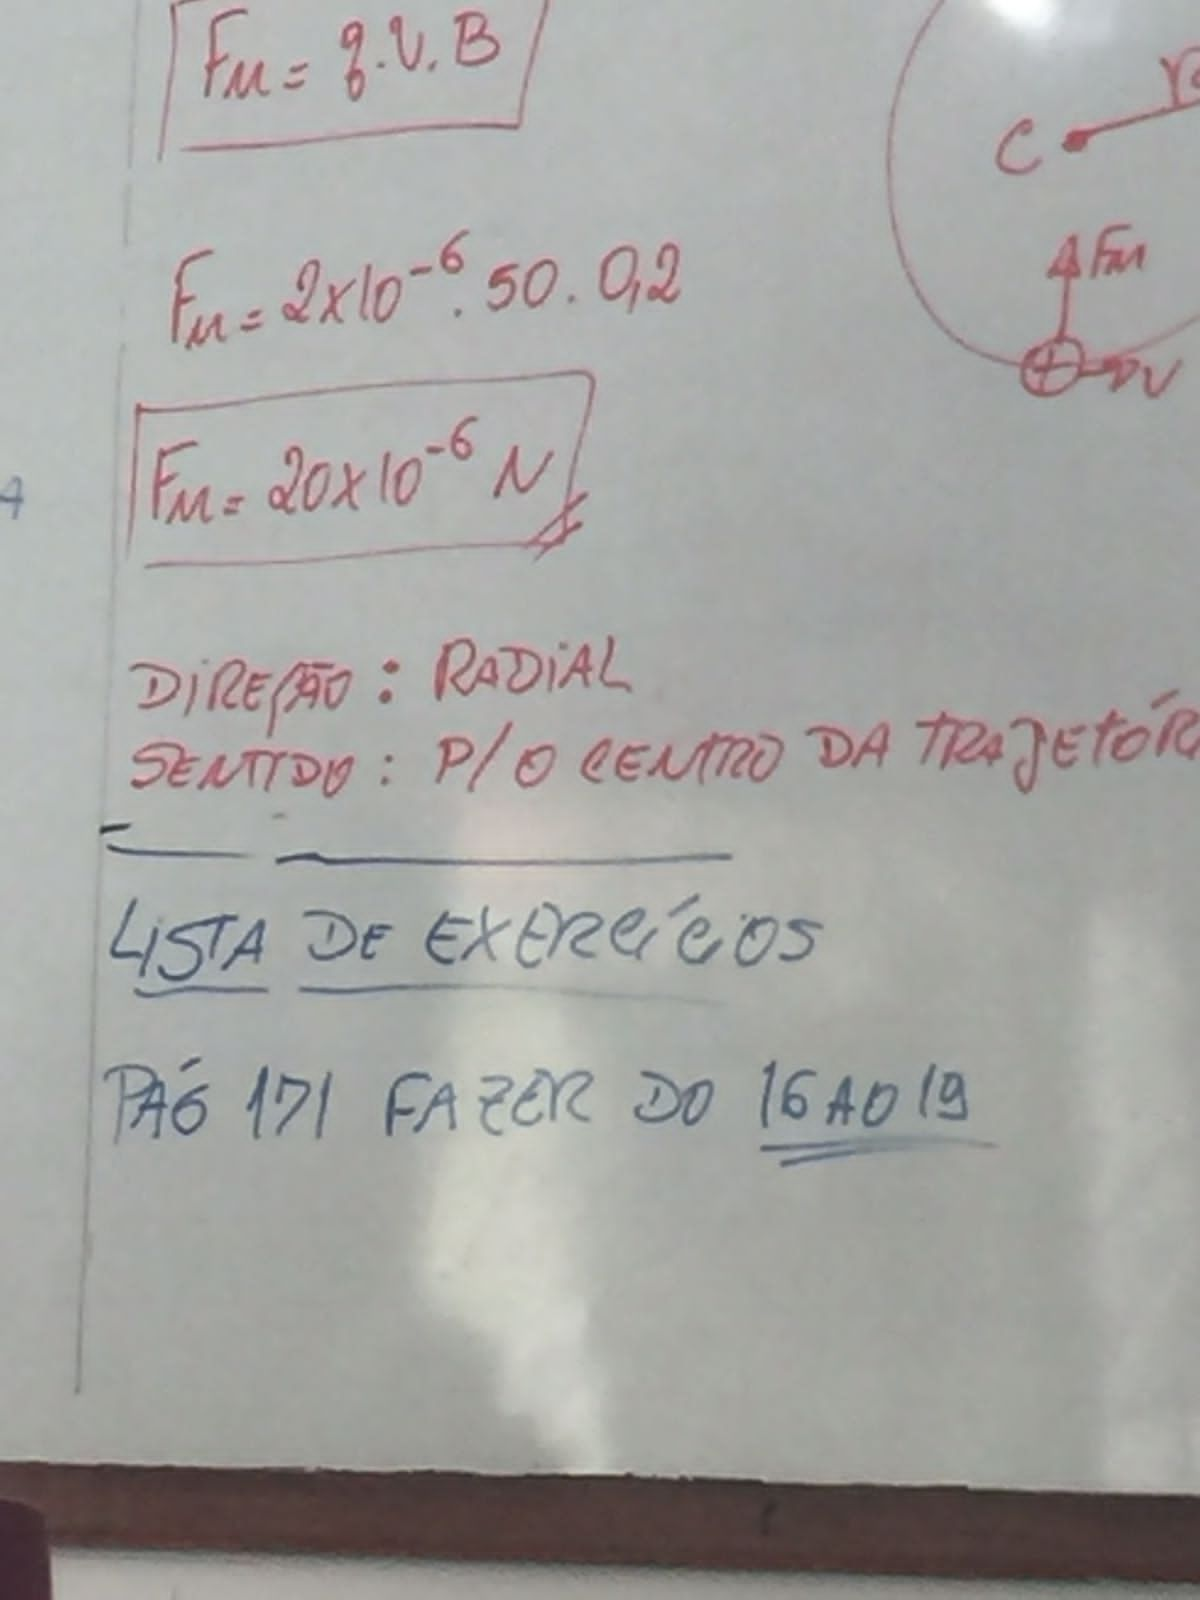 Fм = q.V.B
Fм = 2x10⁻⁶. 50. 0,2
Fм = 20x10⁻⁶ N
C
Fм
V
DIREÇÃO: RADIAL
SENTIDO: P/ O CENTRO DA TRAJETÓR
LISTA DE EXERCÍCIOS
PÁG 171 FAZER DO 16 AO 19